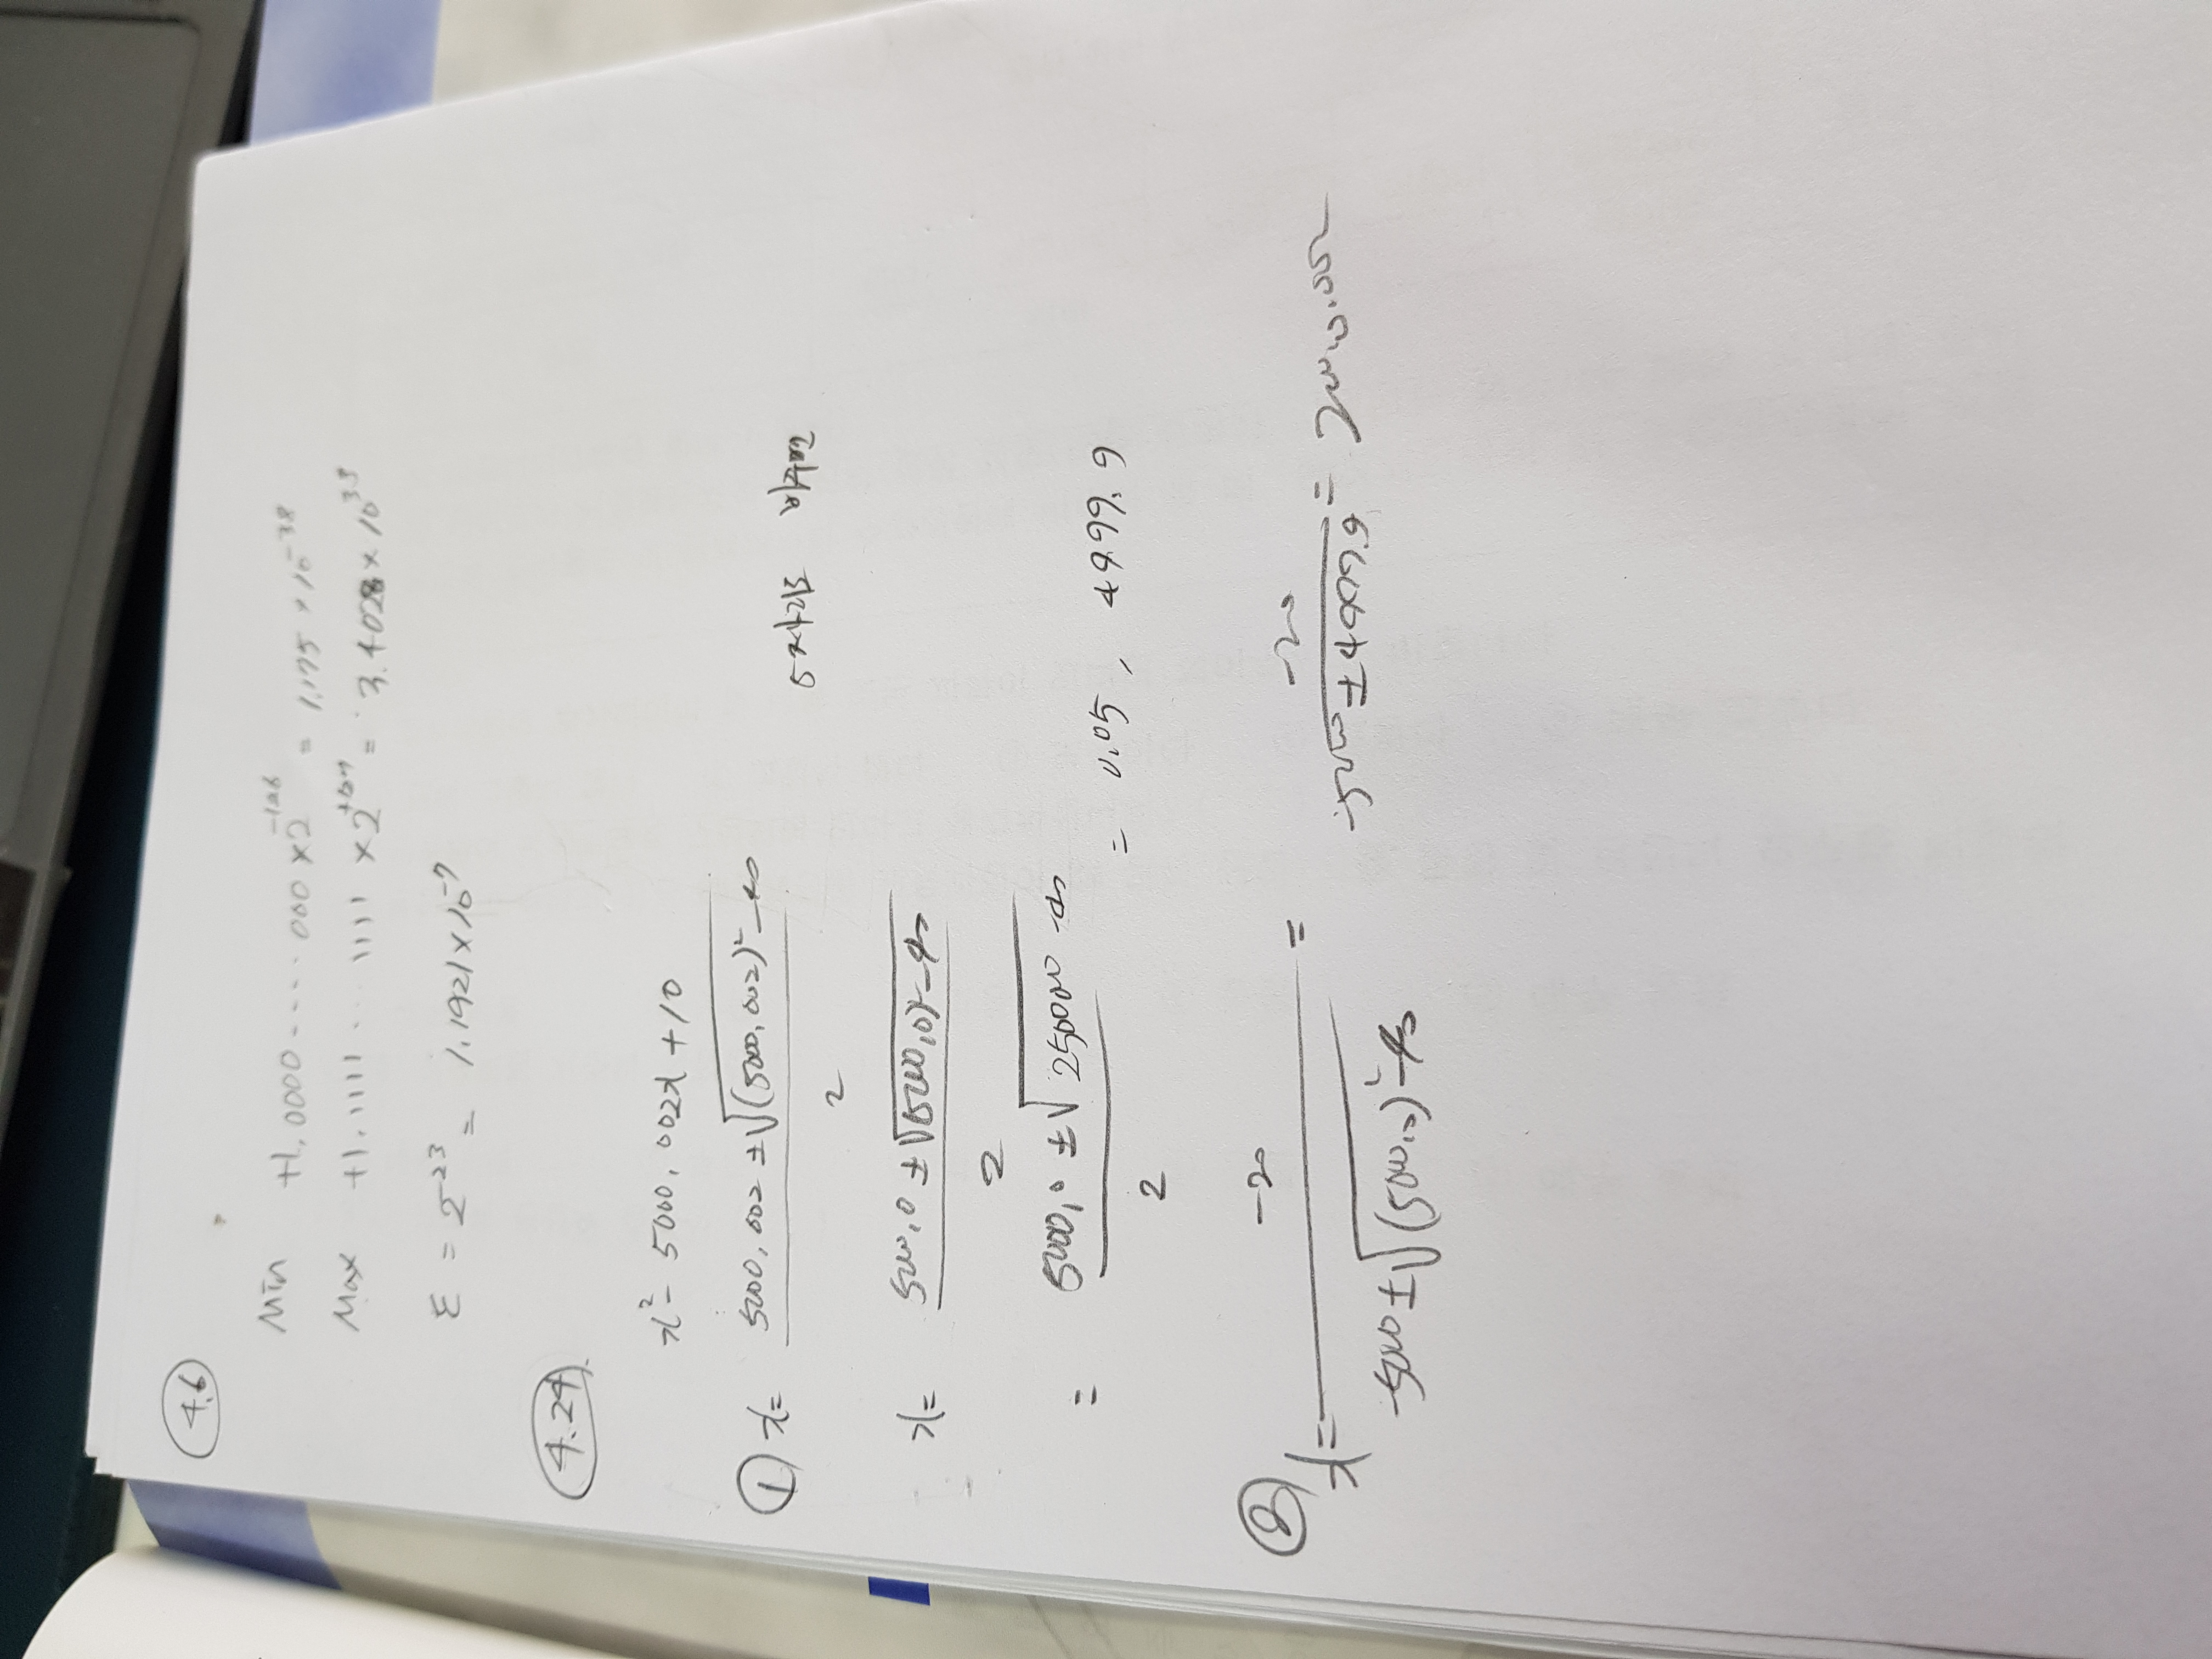 4.6
Min +1.0000 ---- 000 × 2^-126 = 1.175 × 10^-38
Max +1.1111 ... 1111 × 2^+127 = 3.4028 × 10^38
ε = 2^-23 = 1.1921 × 10^-7
4.24
x² - 5000.002x + 10
① x = (5000.002 ± √((5000.002)² - 40)) / 2 5자리로
x = (5000.0 ± √((5000.0)² - 40)) / 2
= (5000.0 ± √(250000 - 40)) / 2 = 0.05, 4999.9
② x = -20 / (-5000 ± √((5000.0)² - 40)) = -20 / (-5000 ± 4999.9) = 200, 0.002